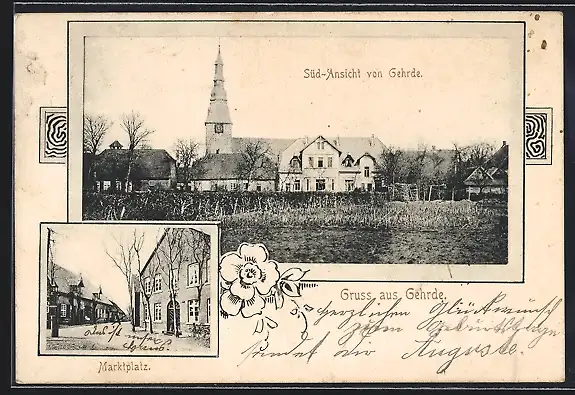 Süd-Ansicht von Gehrde.
Gruss aus Gehrde.
Herzlichen Glückwunsch
zum Geburtstage
sendet dir Auguste.
unser
Marktplatz.